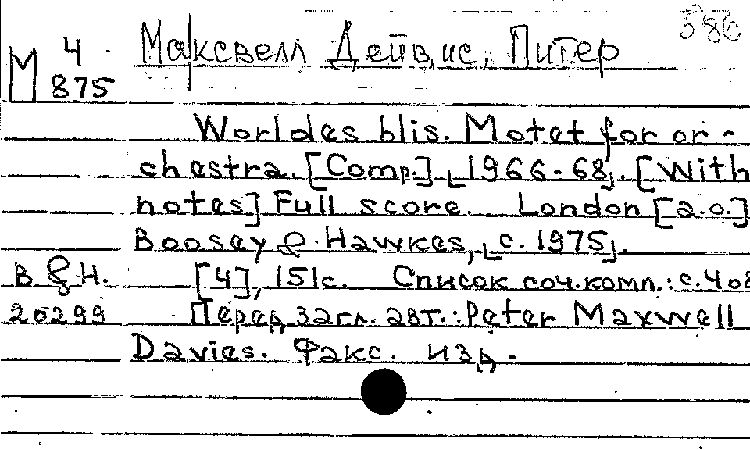 586
М 4 Максвелл Дейвис, Питер
875
Worldes blis. Motet for or-
chestra. [Comp.] 1966-68. [With
notes] Full score. London [a.o.]
Boosey & Hawkes, c. 1975.
B & H. [4], 151с. Список соч. комп.: с. 4 об
20299 Перед загл. авт.: Peter Maxwell
Davies. Факс. изд.